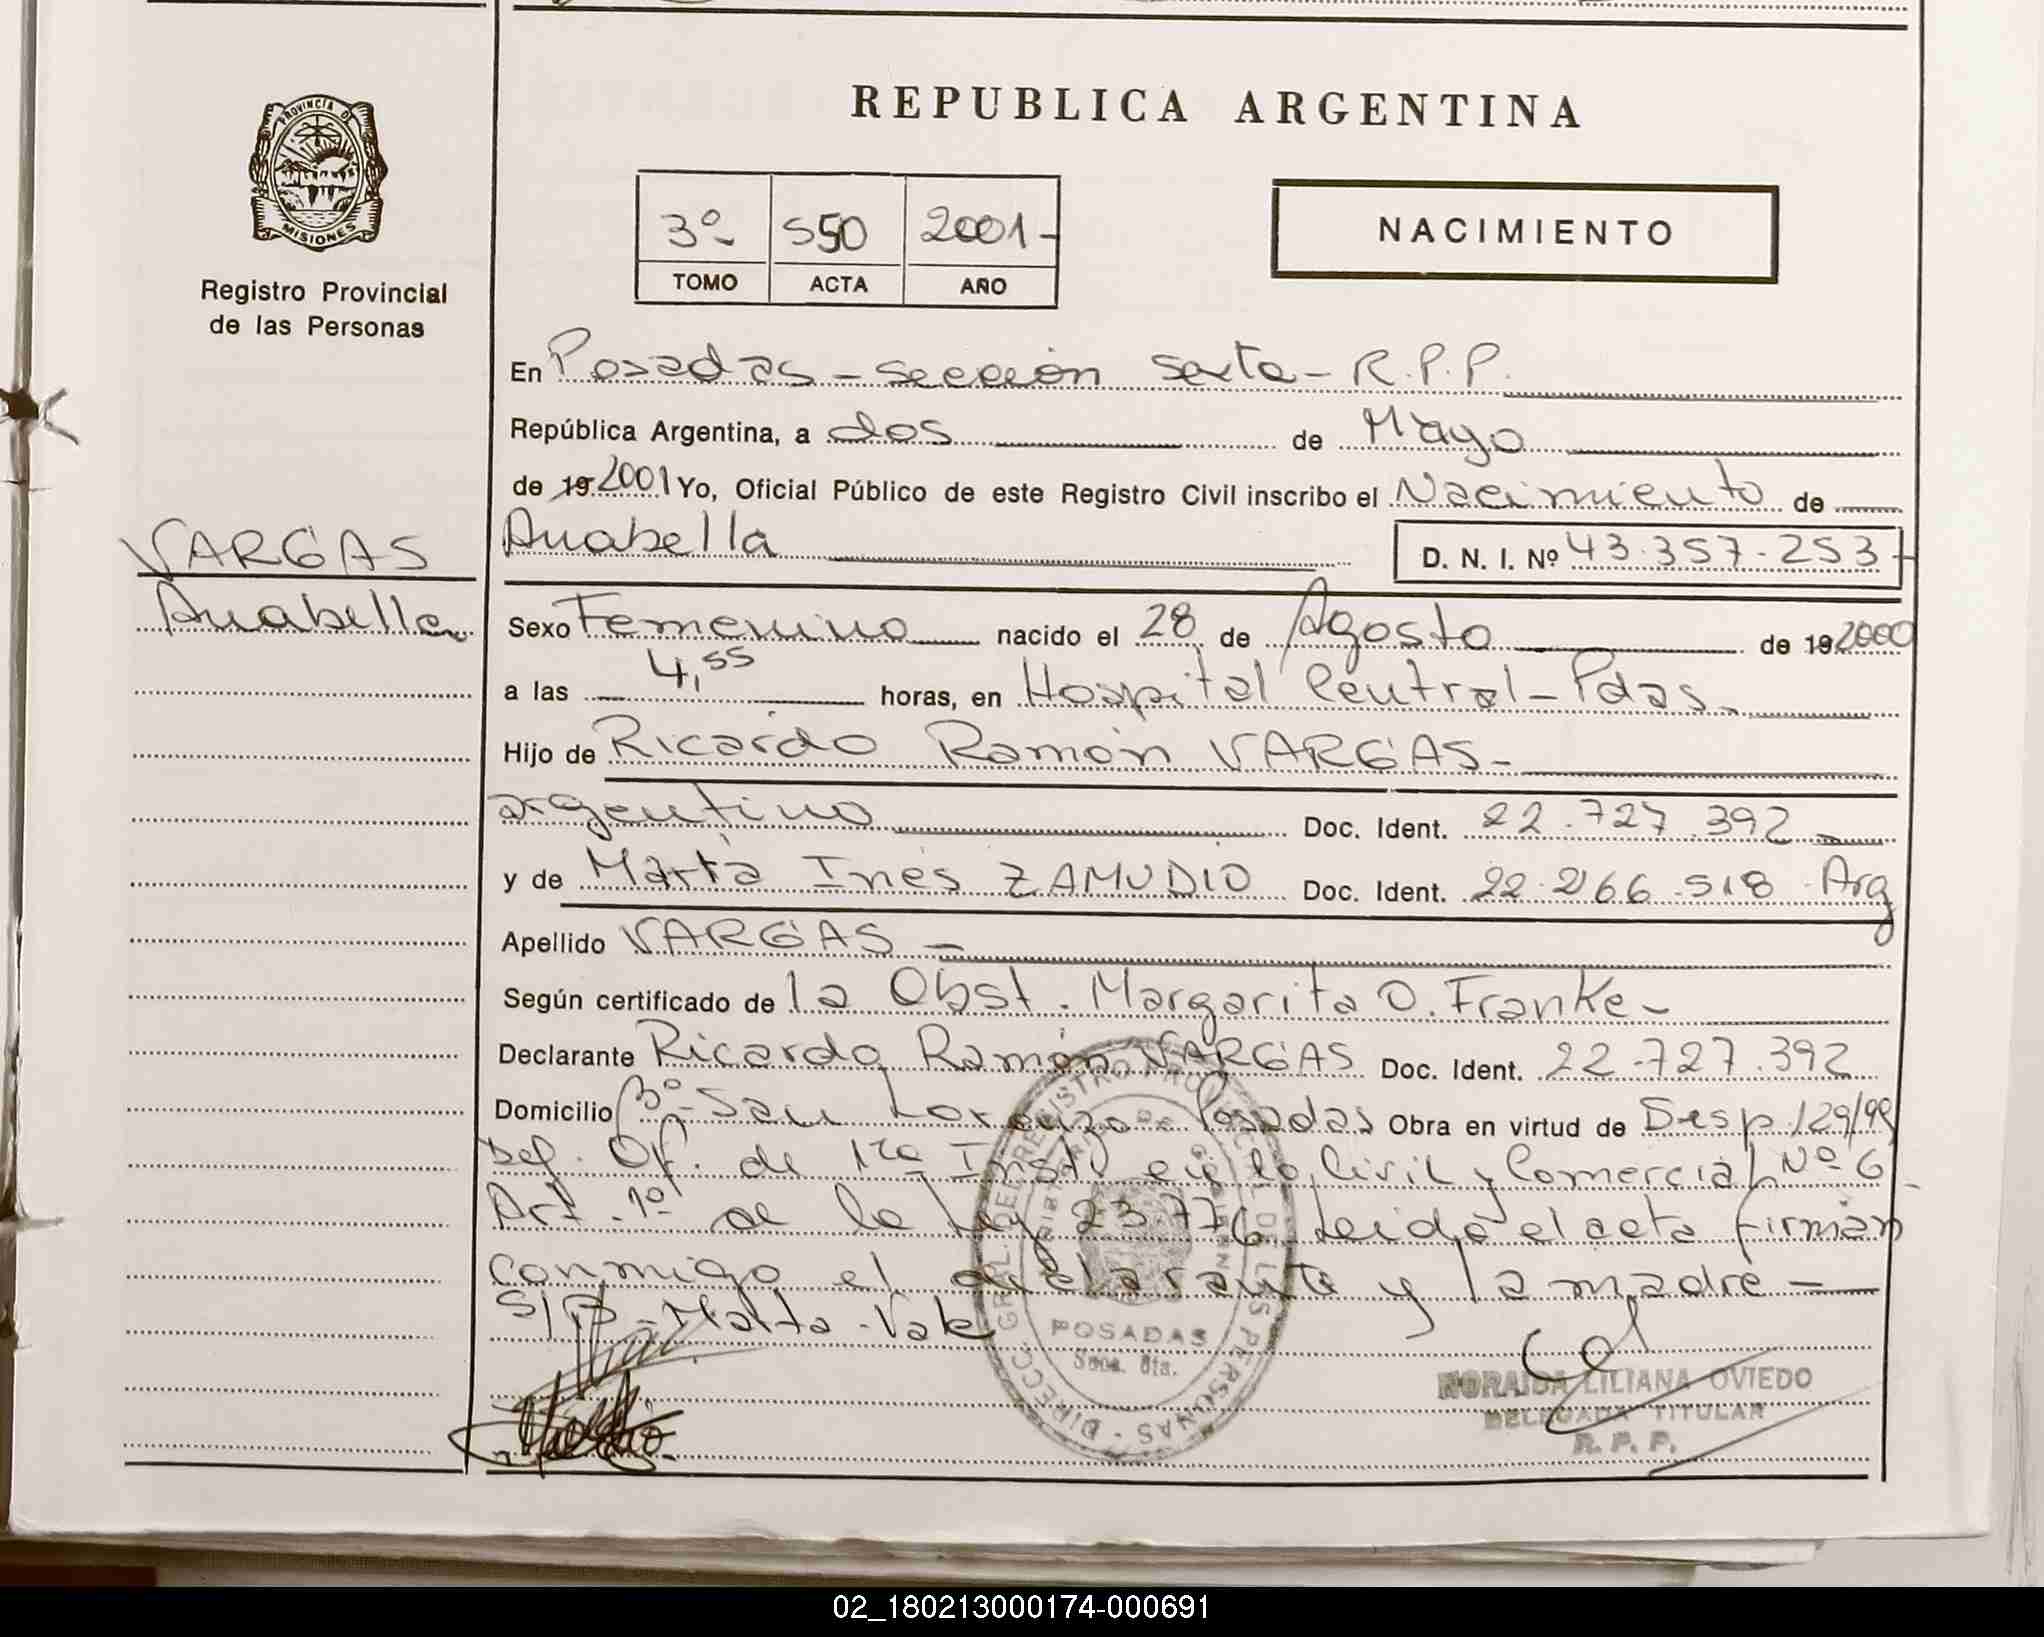 REPUBLICA ARGENTINA
PROVINCIA DE
MISIONES
Registro Provincial
de las Personas
3º 550 2001-
TOMO ACTA AÑO
NACIMIENTO
En Posadas - sección sexta - R.P.P.
República Argentina, a dos de Mayo
de 19 2001 Yo, Oficial Público de este Registro Civil inscribo el Nacimiento de
VARGAS
Anabella
Anabella D. N. I. Nº 43.357.253-
Sexo Femenino nacido el 28 de Agosto de 19 2000
a las 4,55 horas, en Hospital Central - Pdas.
Hijo de Ricardo Ramón VARGAS-
argentino Doc. Ident. 22.727.392
y de Marta Inés ZAMUDIO Doc. Ident. 22.266.518 Arg
Apellido VARGAS -
Según certificado de la Obst. Margarita O. Franke-
Declarante Ricardo Ramón VARGAS Doc. Ident. 22.727.392
Domicilio Bº San Lorenzo Posadas Obra en virtud de Desp. 129/99
Def. Of. de 1ra Inst. en lo Civil y Comercial Nº 6
Art. 1º de la Ley 23.776 Leída el acta firman
conmigo el declarante y la madre -
S/B - Marta - Vale
DIRECC. GRAL. DEL REGISTRO PROVINCIAL DE LAS PERSONAS
POSADAS
Secc. 6ta.
NORAIDA LILIANA OVIEDO
DELEGADA TITULAR
R. P. P.
02_180213000174-000691